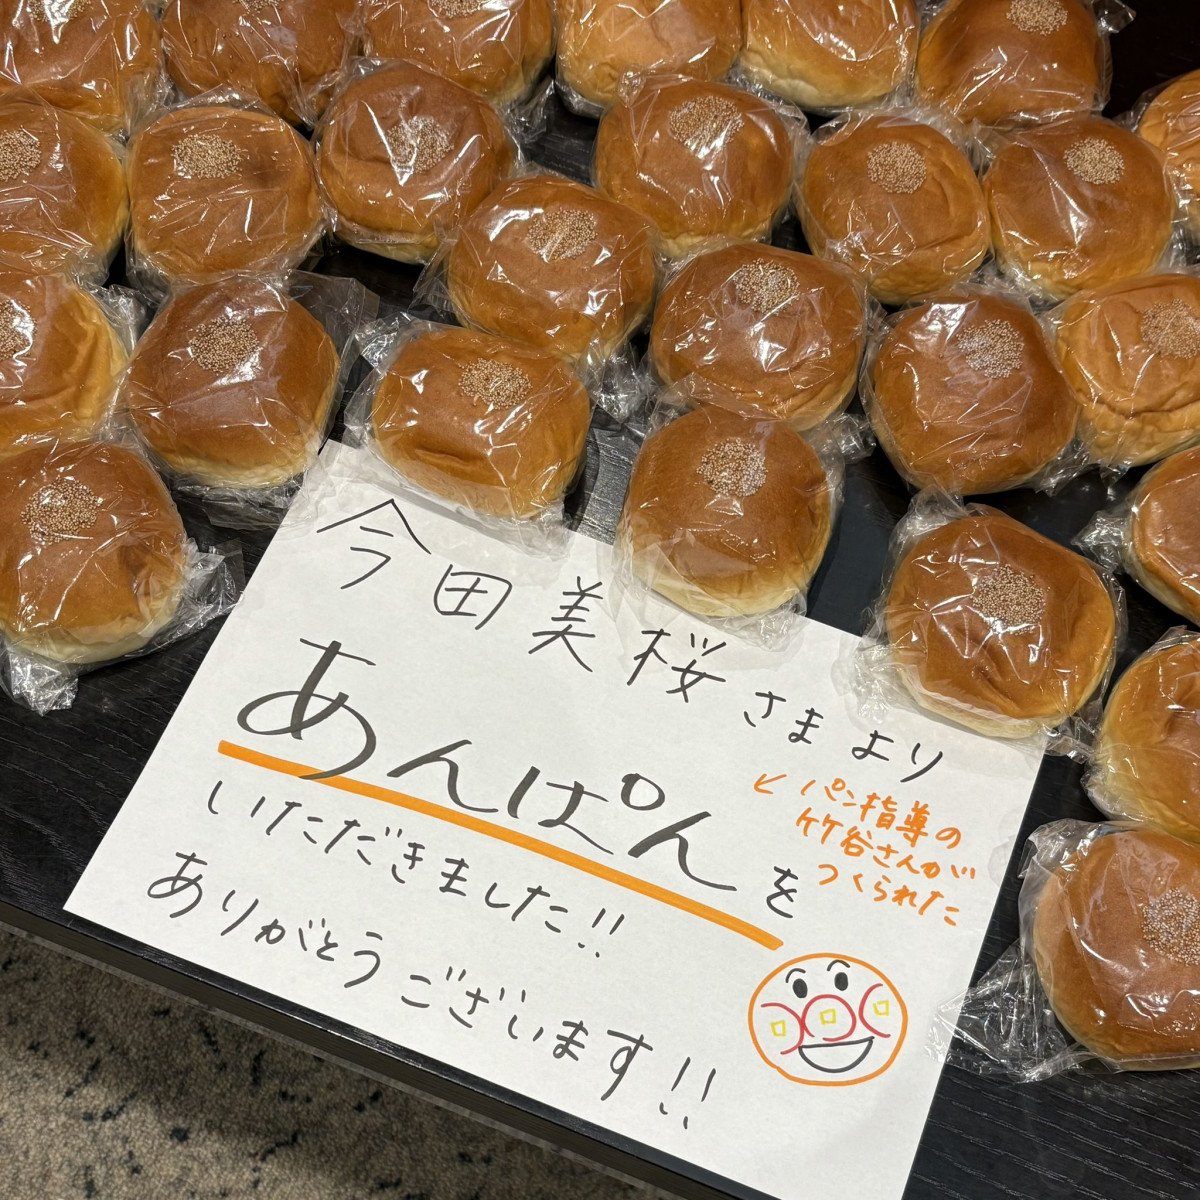 今田美桜さまより
あんぱんを
← パン指導の
竹谷さんが
つくられた
いただきました!!
ありがとうございます!!